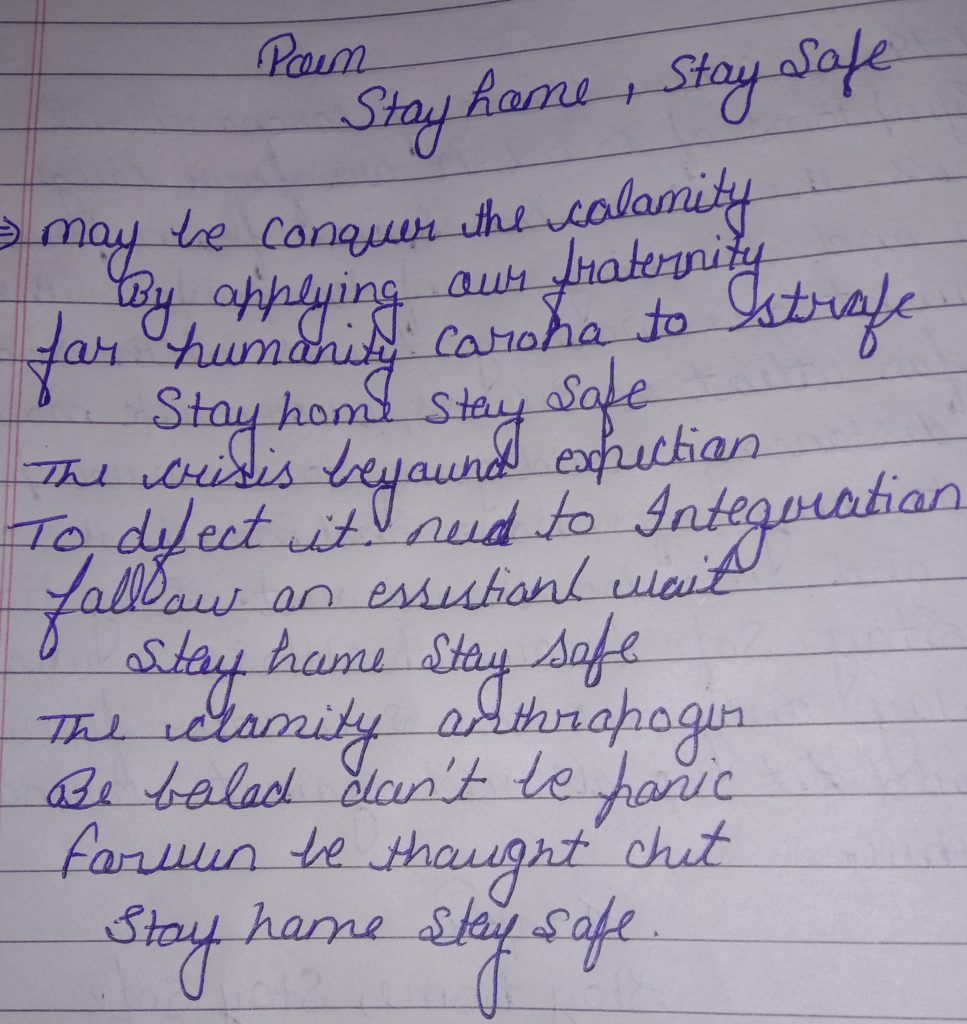 Poem
Stay home, Stay Safe
⇒ may be conquer the calamity
By applying our fraternity
for humanity carona to strafe
Stay home Stay Safe
The crisis beyound expection
To defect it. need to Integeration
follow an essestianl wait
Stay home Stay safe
The clamity anthrapogen
Be balad don't be panic
be thought chit
Stay home Stay Safe.